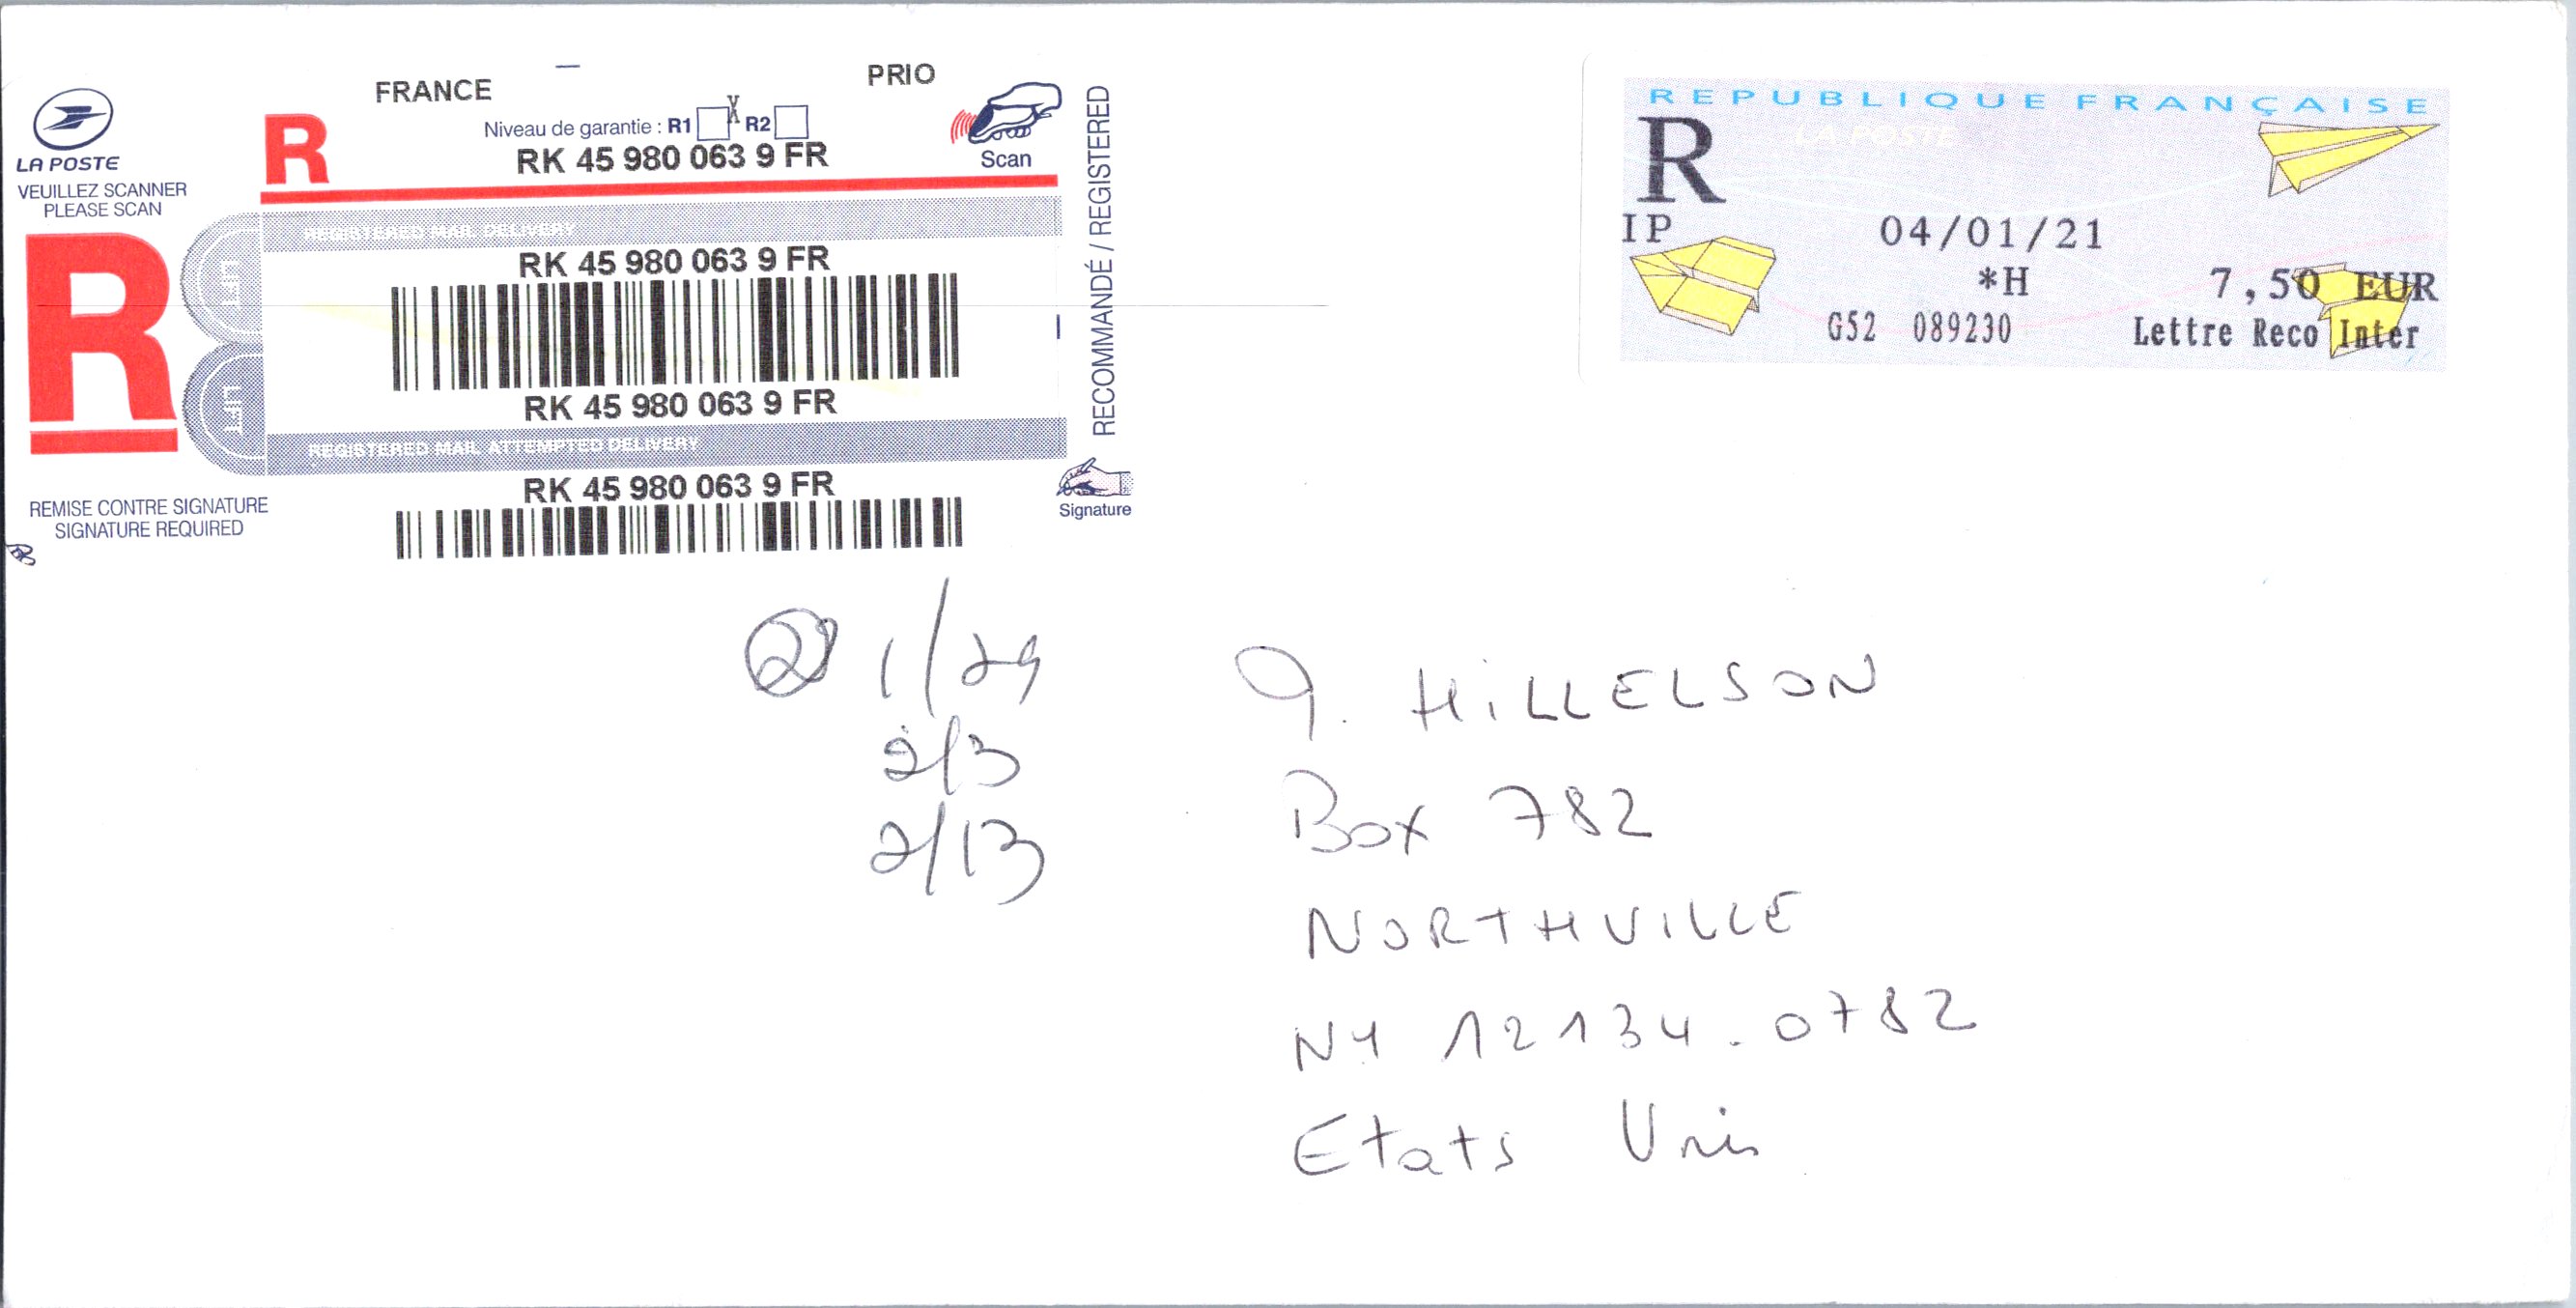 FRANCE
PRIO
Niveau de garantie : R1 X R2
R
RK 45 980 063 9 FR
Scan
LA POSTE
VEUILLEZ SCANNER
PLEASE SCAN
R
REGISTERED MAIL DELIVERY
LIFT
RK 45 980 063 9 FR
RK 45 980 063 9 FR
LIFT
REGISTERED MAIL ATTEMPTED DELIVERY
RK 45 980 063 9 FR
REMISE CONTRE SIGNATURE
SIGNATURE REQUIRED
RECOMMANDÉ / REGISTERED
Signature
REPUBLIQUE FRANÇAISE
LA POSTE
R
IP
04/01/21
*H 7,50 EUR
G52 089230 Lettre Reco Inter
1/29
2/3
2/13
HiLLELSON
Box 782
NORTHVILLE
NY 12134.0782
Etats Unis